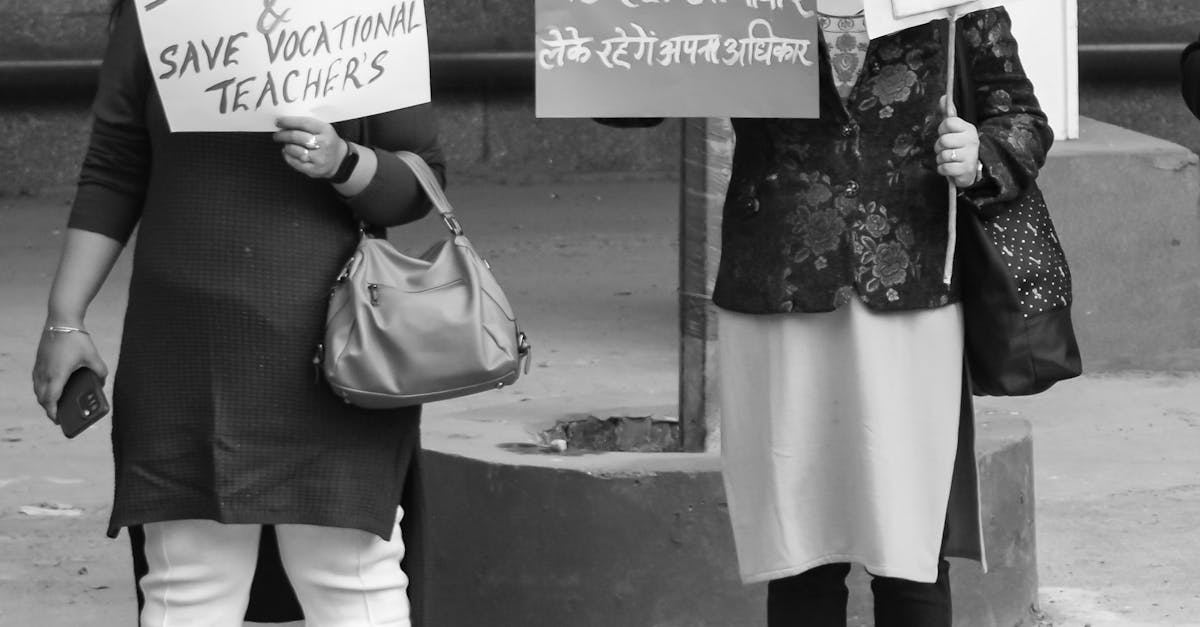 &
SAVE VOCATIONAL
TEACHER'S
लेके रहेगें अपना अधिकार